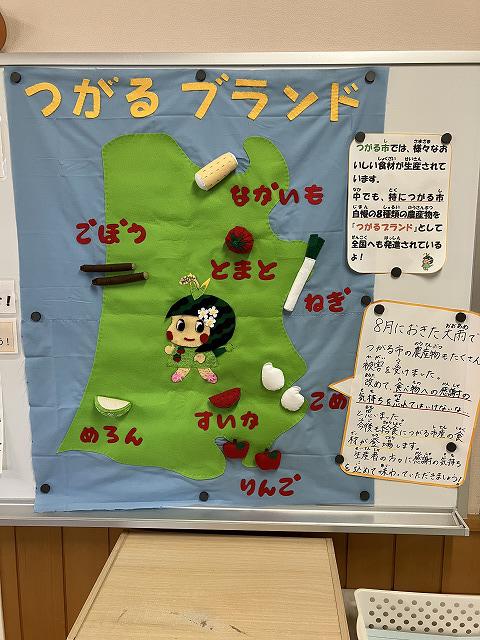 つがる ブランド
ながいも
ごぼう
とまと
ねぎ
こめ
すいか
めろん
りんご
つがる市では、様々なお
いしい食材が生産されて
います。
中でも、特につがる市
自慢の8種類の農産物を
「つがるブランド」として
全国へも発進されている
よ!
8月におきた大雨で
つがる市の農産物もたくさん
被害を受けました。
改めて、食べ物への感謝の
気持ちを忘れてはいけないな
と思いました。
今後も給食につがる市産の食
材が登場します。
生産者の方々に感謝の気持ち
を込めて味わっていただきましょう!